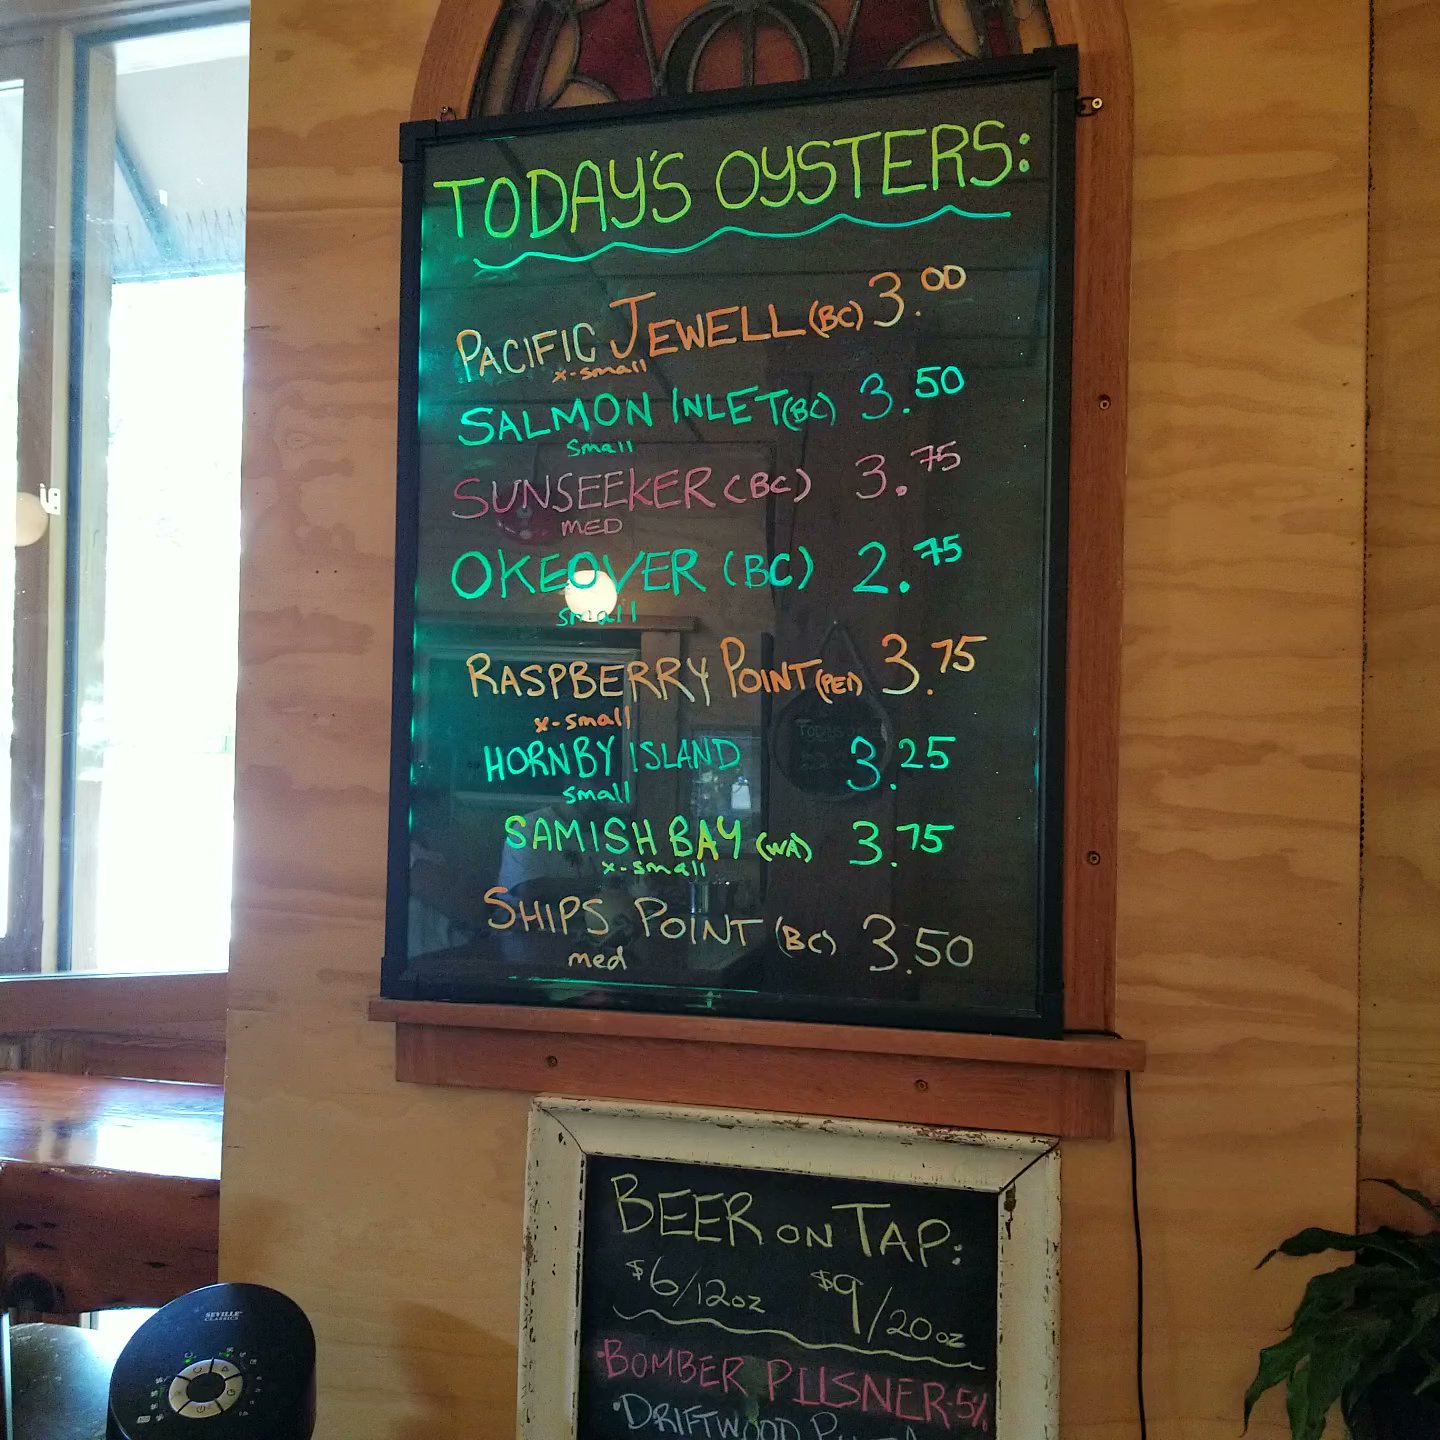 TODAY'S OYSTERS:
PACIFIC JEWELL (BC) 3.00
x-small
SALMON INLET (BC) 3.50
small
SUNSEEKER (BC) 3.75
MED
OKEOVER (BC) 2.75
small
RASPBERRY POINT (PEI) 3.75
x-small
HORNBY ISLAND 3.25
small
SAMISH BAY (WA) 3.75
x-small
SHIPS POINT (BC) 3.50
med
BEER ON TAP:
$6/12oz $9/20oz
·BOMBER PILSNER·5%
·DRIFTWOOD
SEVILLE
CLASSICS